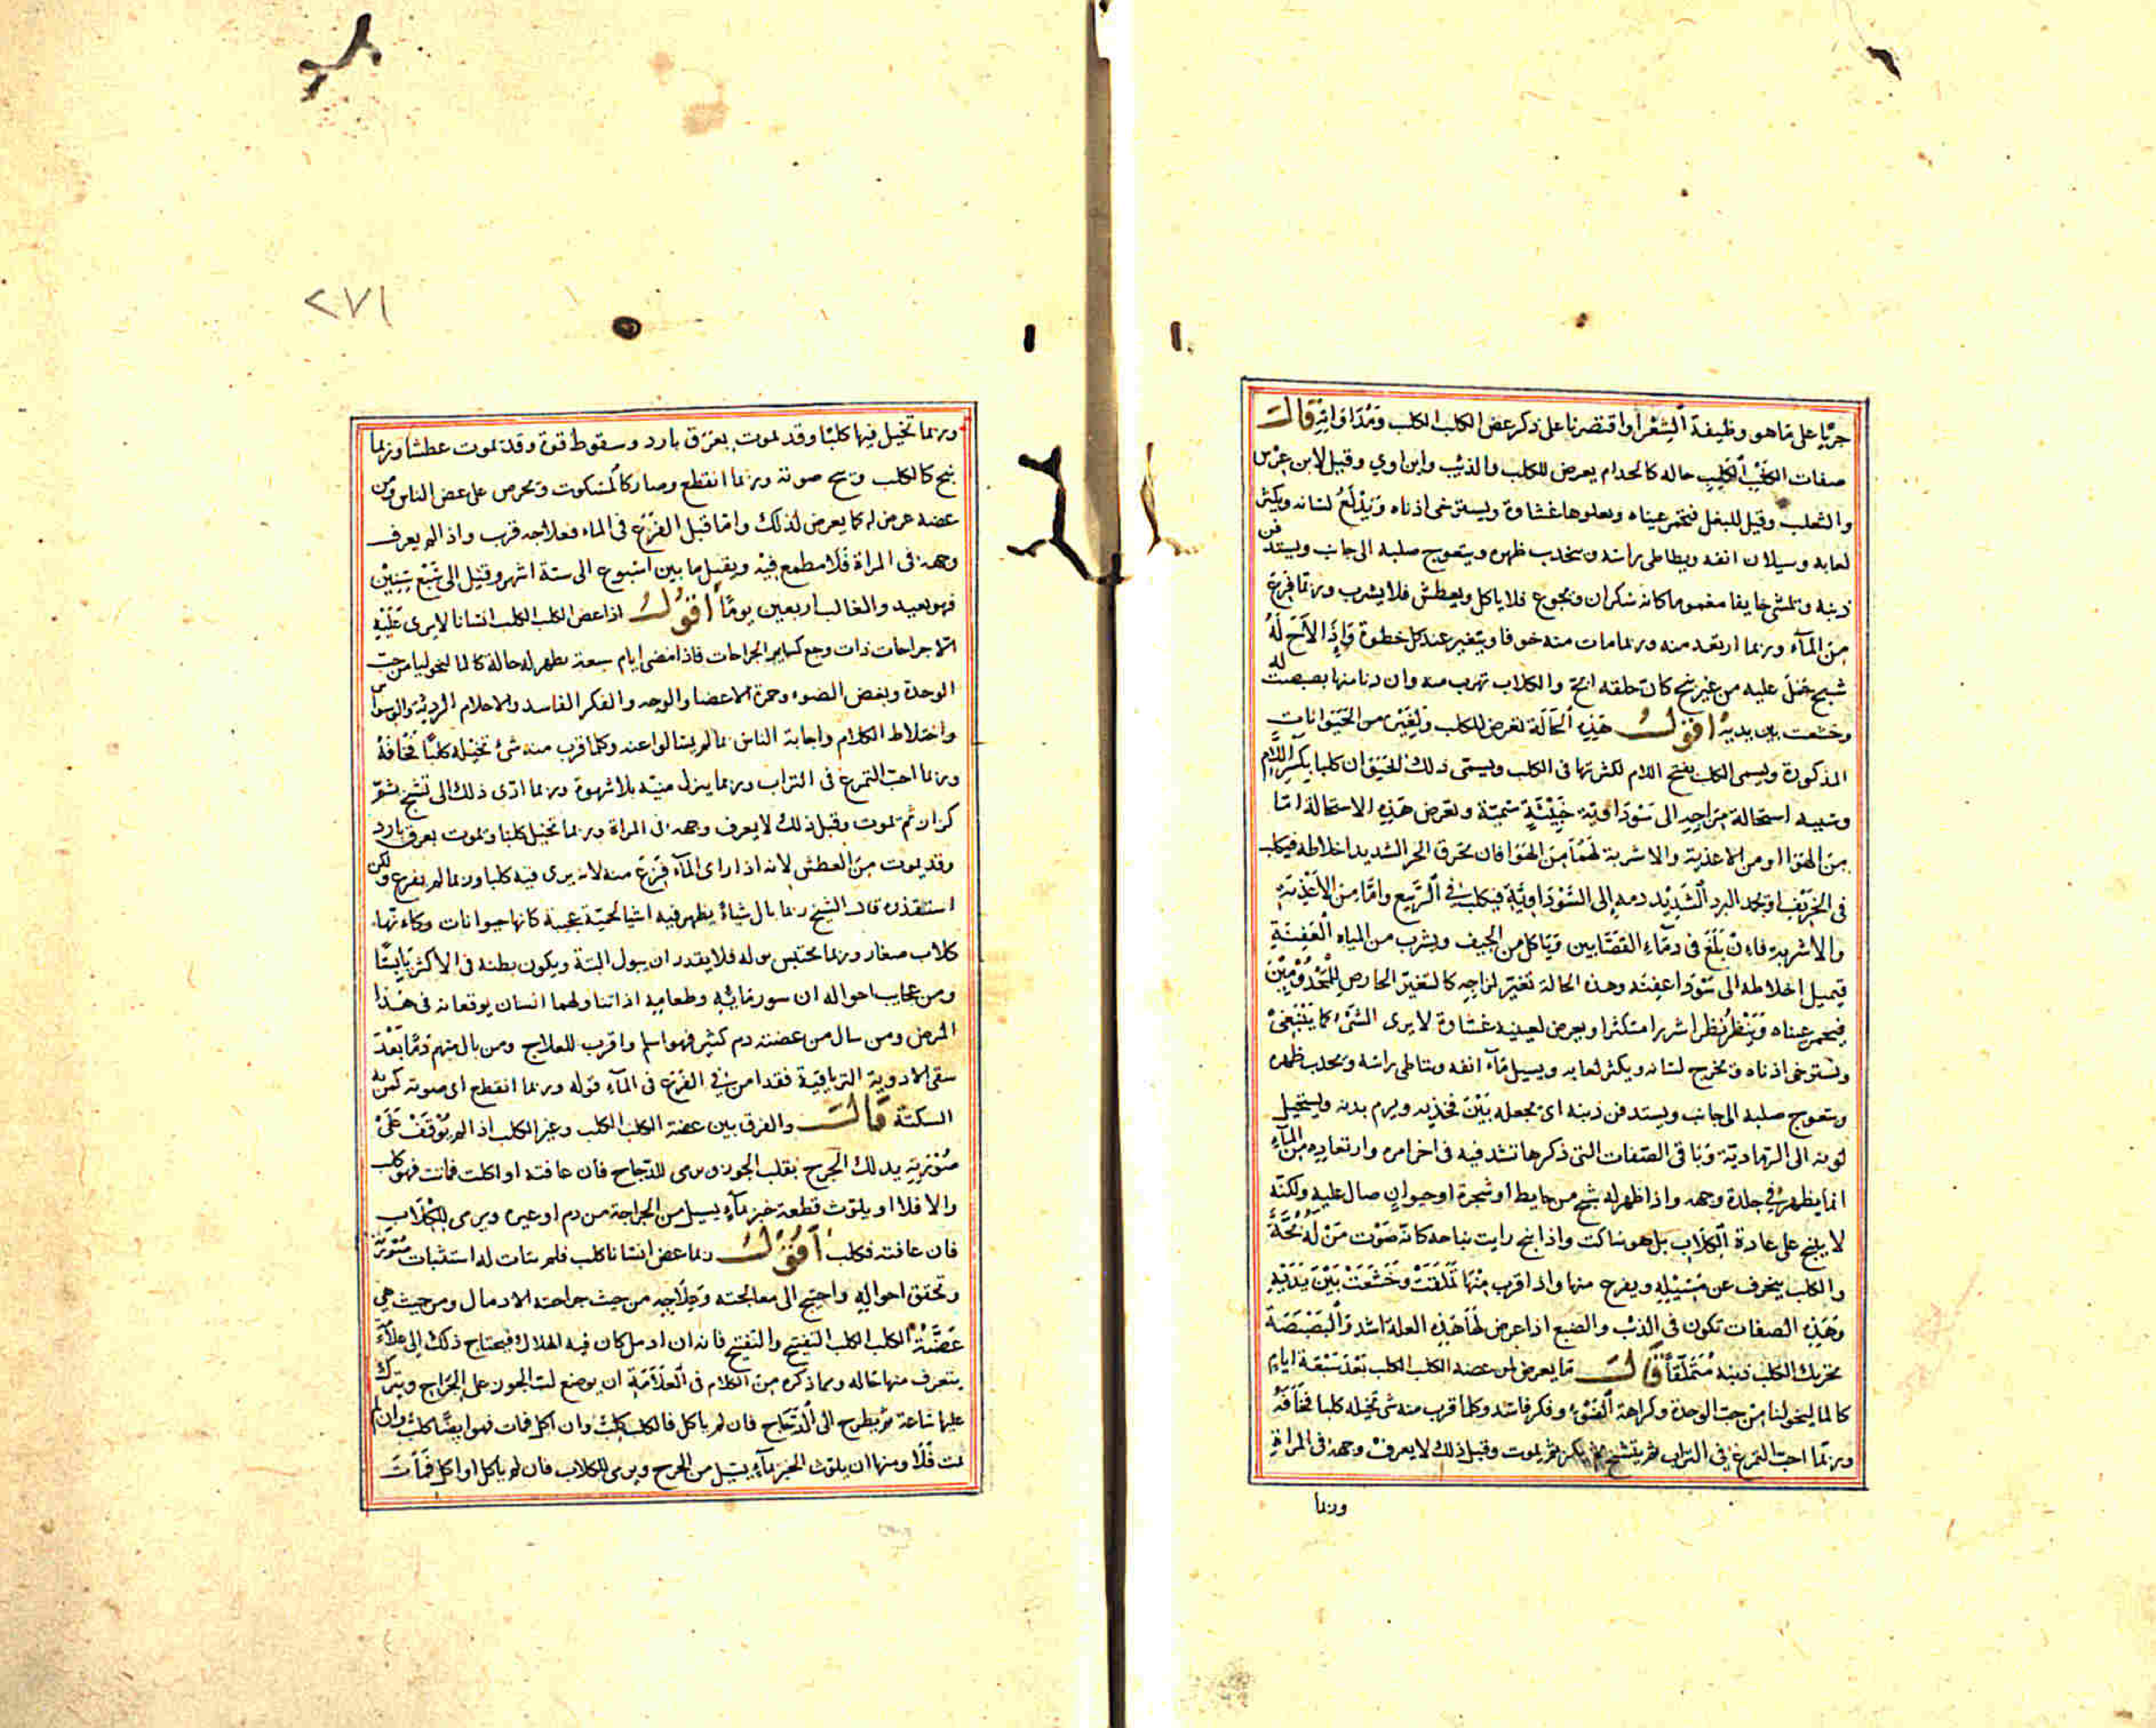 جريا على ما هو وظيفة الشعرا واقتصرنا على ذكر عض الكلب الكلب ومداواته قالـــ
صفات الكلب الكلب حاله كالجدام يعرض للكلب والذئب وابن اوي وقيل لابن عرس
والثعلب وقيل للبغل فتحمر عيناه ويعلوها غشاوة ويسترخى اذناه ويندلع لسانه ويكثر
لعابه وسيلان انفه ويطاطى راسه ويتحدب ظهره ويتعوج صلبه الى جانب ويستدفن
ذنبه ويمشى خايفا مغموما كانه سكران ويجوع فلا ياكل ويعطش فلا يشرب وربما فزع
من المآء وربما ارتعد منه وربما مات منه خوفا ويتغير عند كل خطوة واذا لاح له
شبح حمل عليه من غير نبح كان حلقه ابح والكلاب تهرب منه وان دنا منها بصبصت له
وخشعت بين يديه اقولـــ هذه الحالة تعرض للكلب ولغيره من الحيوانات
المذكورة ويسمى الكلب بفتح اللام لكثرتها فى الكلب ويسمى ذلك الحيوان كلبا بكسر اللام
وسببه استحالة مزاجه الى سوداوية خبيثة سمية وتعرض هذه الاستحالة اما
من الهوا او من الاغذية والاشربة لهما من الهوا فان يحرق الحر الشديد اخلاطه فيكلب
فى الخريف او يجمد البرد الشديد دمه إلى السوداوية فيكلب فى الربيع واما من الاغذية
والاشربة فاءن بلغ فى دمآء القصابين وياكل من الجيف ويشرب من المياه العفنة
فيميل اخلاطه الى سودا عفنة وهذه الحالة تغير لمزاجه كالتغير العارض للمجذومين
فيحمر عيناه وينظر نظرا شزرا متكثرا ويعرض لعينيه غشاوة لا يرى الشئ كما ينبغى
وتسترخى اذناه ويخرج لسانه ويكثر لعابه ويسيل مآء انفه ويتاطى راسه ويحدب ظهره
ويتعوج صلبه الى جانب ويستدفن ذنبه اى يجعله بين فخذيه ويرم بدنه ويستحيل
لونه الى الرمادية وباقى الصفات التى ذكرها تشتد فيه فى اخر امره وارتعاده من المآء
انما يظهر فى جلدة وجهه واذا ظهر له شبح من حايط او شجرة او حيوان صال عليه ولكنه
لا ينبح على عادة الكلاب بل هو ساكت واذا نبح رايت نباحه كانه صوت من له بحة
والكلب ينحرف عن سبيله ويفرح منها واذا قرب منها تملقت وخشعت بين يديه
وهذه الصفات تكون فى الذئب والضبع اذا عرض لها هذه العلة اشد والبصبصة
تحريك الكلب ذنبه متملقا قالـــ ما يعرض لمن عضه الكلب الكلب بعد سبعة ايام
كالماليخوليا من حب الوحدة وكراهة الضوء وفكر فاسد وكلما قرب منه شى تخيله كلبا فخافه
وربما احب التمرغ فى التراب ثم يتشنج ثم يكزز ثم يموت وقبل ذلك لا يعرف وجهه فى المراة
وربما
٢٧١
وربما تخيل فيها كلبا وقد يموت بعرق بارد وسقوط قوة وقد يموت عطشا وربما
نبح كالكلب وبح صوته وربما انقطع وصار كالمسكوت ويحرص على عض الناس ومن
عضه عرض له كما يعرض لذلك واما قبل الفزع فى الماء فعلاجه قرب واذا لم يعرف
وجهه فى المراة فلا مطمع فيه ويقتل ما بين اسبوع الى ستة اشهر وقيل الى سبع سنين
فهو بعيد والغالب اربعين يوما اقولـــ اذا عض الكلب الكلب انسانا لا يرى عليه
الا جراحات ذات وجع كساير الجراحات فاذا مضى ايام سبعة يظهر له حالة كالماليخوليا من حب
الوحدة وبغض الضوء وحمرة الاعضا والوجه والفكر الفاسد والاحلام الردية والوسواس
واختلاط الكلام واجابة الناس بما لم يسالوا عنه وكلما قرب منه شئ تخيله كلبا فخافه
وربما احب التمرغ فى التراب وربما ينزل منيه بلا شهوة وربما ادى ذلك الى تشنج ثم
كزاز ثم يموت وقبل ذلك لا يعرف وجهه فى المراة وربما تخيل كلبا ويموت بعرق بارد
وقد يموت من العطش لانه اذا راى المآء فزع منه لانه يرى فيه كلبا وربما لم يفزع ولكن
استقذره قال الشيخ ربما بال شياء يظهر فيه اشيا لحمية عجيبة كانها حيوانات وكانها
كلاب صغار وربما يحتبس بوله فلا يقدر ان يبول البتة ويكون بطنه فى الاكثر يابسا
ومن عجايب احواله ان سور مايه وطعامه اذا تناولهما انسان يوقعانه فى هذا
المرض ومن سال من عضته دم كثير فهو اسلم واقرب للعلاج ومن بال منهم دما بعد
سقى الادوية الترياقية فقد امن فى الفزع فى المآء قوله وربما انقطع اى صوته كمن به
السكتة قالـــ والفرق بين عضة الكلب الكلب وغير الكلب اذا لم يوقف على
صورته يدلك الجرح بقلب الجوز ويرمى للدجاج فان عافته او اكلت فماتت فهو كلب
والا فلا او يلوث قطعة خبز بمآء يسيل من الجراحة من دم او غيره ويرمى للكلاب
فان عافته فكلب اقولـــ ربما عض انسانا كلب فلم يتات له استثبات صورته
وتحقق احواله واحتيج الى معالجته وعلاجه من حيث جراحته الادمال ومن حيث هى
عضة الكلب الكلب التقيح والتفتيح فانه ان ادمل كان فيه الهلاك فيحتاج ذلك إلى علامة
يتعرف منها حاله ومما ذكره من الكلام فى العلامة ان يوضع لب الجوز على الجراح ويترك
عليها ساعة ثم يطرح الى الدجاج فان لم ياكل فالكلب كلب وان اكل فمات فهو ايضا كلب وان لم
يمت فلا ومنها ان يلوث الخبز بمآء يسيل من الجرح ويرمى للكلاب فان لم ياكل او اكل فمات